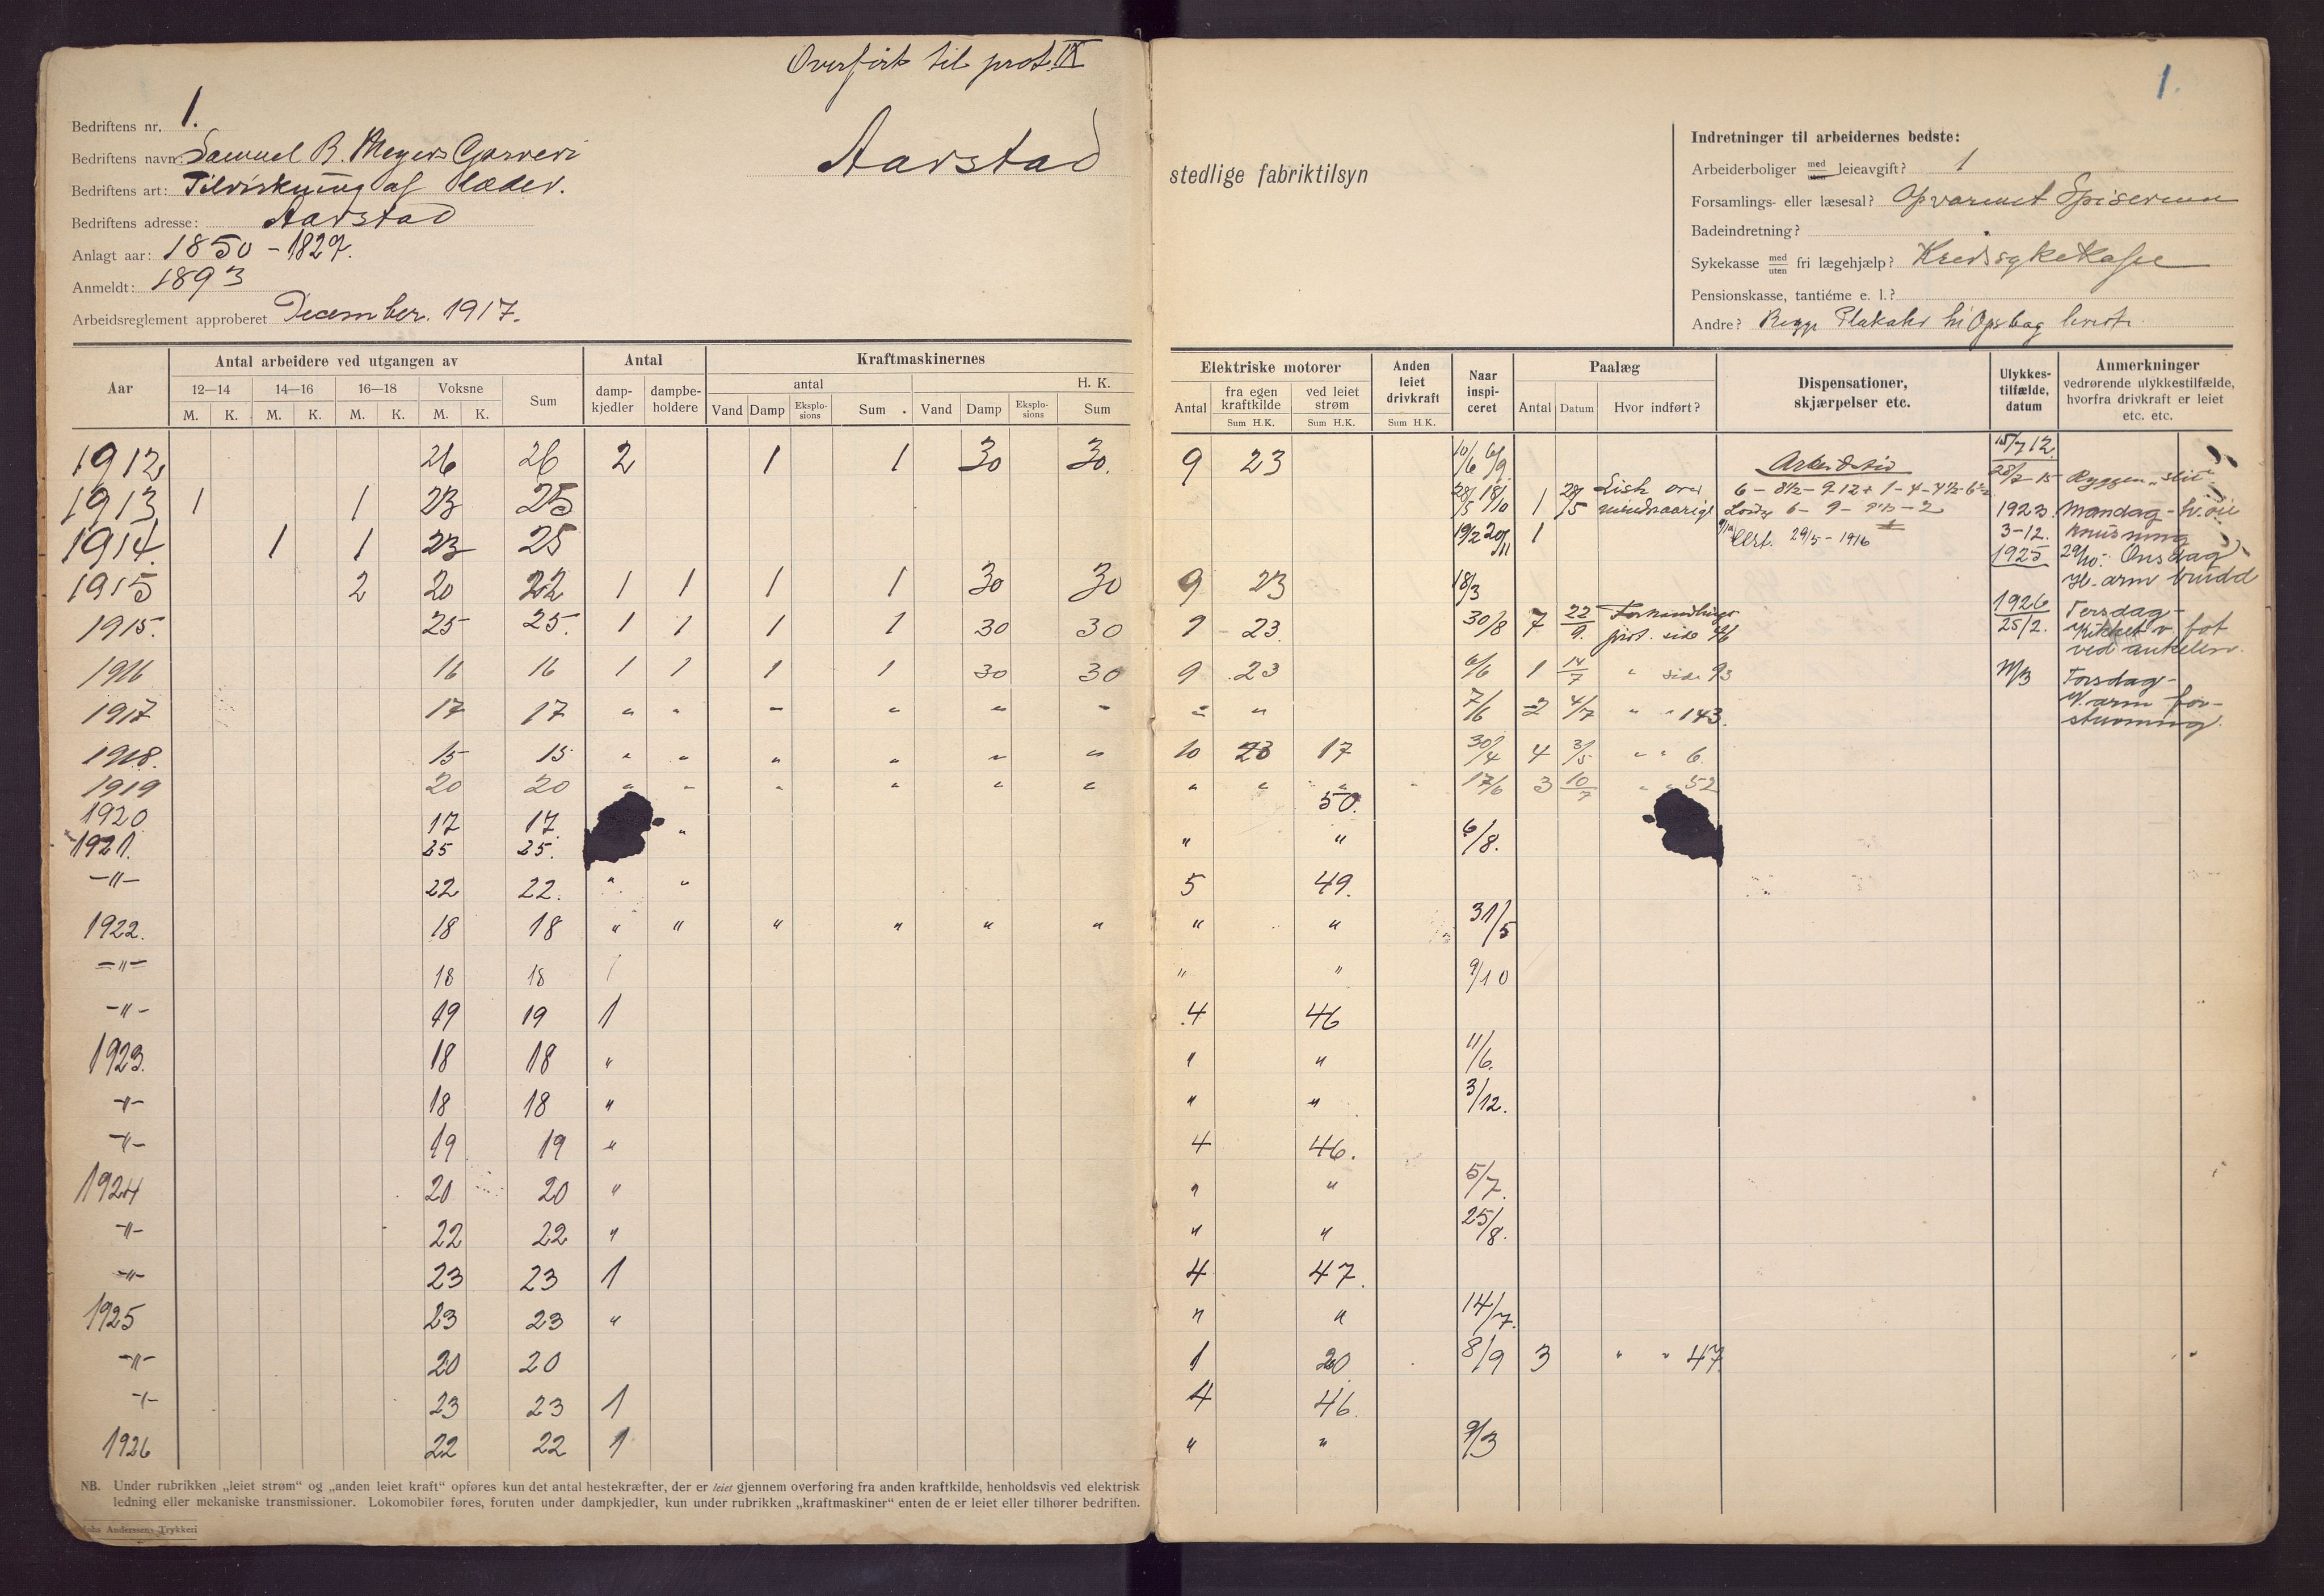 Overført til prot. IX
1.
Bedriftens nr. 1.
Bedriftens navn: Samuel B. Meyers Garveri
Bedriftens art: Tilvirkning af Læder.
Bedriftens adresse: Aarstad
Anlagt aar: 1850 - 1827.
Anmeldt: 1893
Arbeidsreglement approberet December. 1917.
Aarstad stedlige fabriktilsyn
Indretninger til arbeidernes bedste:
Arbeiderboliger med uten leieavgift? 1
Forsamlings- eller læsesal? Opvarmet Spiserum
Badeindretning?
Sykekasse med uten fri lægehjælp? Kredssykekasse
Pensionskasse, tantiéme e. l.?
Andre? Begge Plakater til Opslag
Aar Antal arbeidere ved utgangen av Antal Kraftmaskinernes
12—14 14—16 16—18 Voksne Sum damp-kjedler dampbe-holdere antal H. K.
M. K. M. K. M. K. M. K. Vand Damp Eksplo-sions Sum Vand Damp Eksplo-sions Sum
Elektriske motorer Anden leiet drivkraft Naar inspi-ceret Paalæg Dispensationer, skjærpelser etc. Ulykkes-tilfælde, datum Anmerkninger vedrørende ulykkestilfælde, hvorfra drivkraft er leiet etc. etc.
Antal fra egen kraftkilde ved leiet strøm Antal Datum Hvor indført?
Sum H.K. Sum H.K. Sum H.K.
1912 26 26 2 1 1 30 30. 9 23 10/6 6/9 Arbeidstid 15/7 12.
28/7-15 Ryggen
1913 1 1 23 25 28/5 18/10 1 28/5 Liste over mindreaarige 6 - 8½ - 9-12 + 1 - 4 - 4½ - 6½
1923. Mandag - h. øie
1914. 1 1 23 25 19/2 20/11 1 Cert. 29/5 - 1916 3-12. Knusning
1925 29/10: Onsdag
1915 2 20 22 1 1 1 1 30 30 9 23 18/3 H. arm brudd
1915. 25 25. 1 1 1 1 30 30 9 23. 30/8 7 22/9. Forhandlings prot. side 46 1926 25/2. Torsdag - v. fot ved ankelen.
1916 16 16 1 1 1 1 30 30 9 23 6/6 1 14/7 " side 93 Torsdag -
1917 17 17 " " " " " " " " 7/6 2 4/7 " " 143. V. arm for-stuvning.
1918. 15 15 " " " " " " 10 23 17 30/4 4 3/5 " " 6.
1919 20 20 " " " " " " " " " 17/6 3 10/7 " " 52
1920 17 17. " 50.
1921. 25 25. " " 6/8.
-"- 22 22. " " 5 49.
1922. 18 18 " " " " " " " " 31/5
-"- 18 18 / " " 9/10
-"- 19 19 1 4 46
1923. 18 18 " " " 11/6.
-"- 18 18 " " " 3/12.
-"- 19 19 " 4 46.
1924 20 20 " " " 5/7.
-"- 22 22 " " " 25/8.
-"- 23 23 1 4 47.
1925 23 23 " " " 14/7.
-"- 20 20 1 20 8/9 3 " " 47
-"- 23 23 1 4 46.
1926 22 22 1 " " 9/3
NB. Under rubrikken „leiet strøm“ og „anden leiet kraft“ opføres kun det antal hestekræfter, der er leiet gjennem overføring fra anden kraftkilde, henholdsvis ved elektrisk
ledning eller mekaniske transmissioner. Lokomobiler føres, foruten under dampkjedler, kun under rubrikken „kraftmaskiner“ enten de er leiet eller tilhører bedriften.
Anderssens Trykkeri